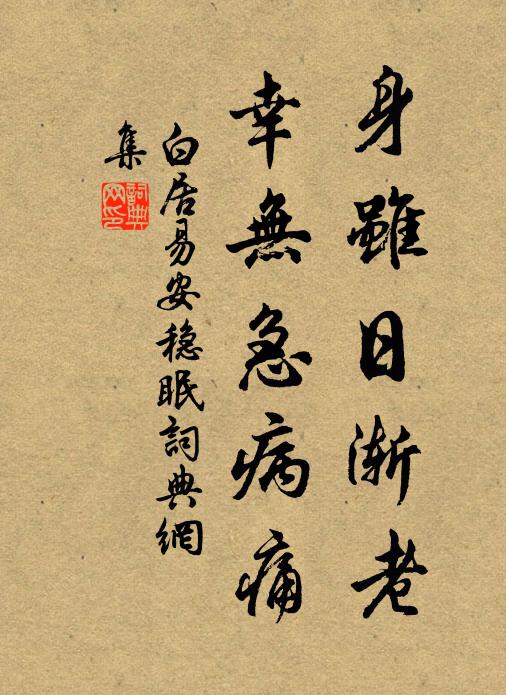 身雖日漸老
幸無急病痛
白居易安穩眠詞典網
集
詞典
网印